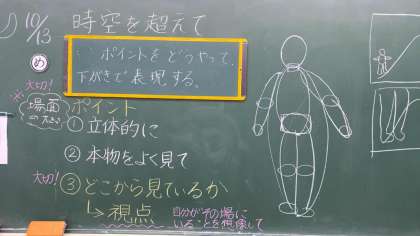 10/13
時空を超えて
め
ポイントをどうやって、
下がきで表現する。
大切!
場面
ポイント
①立体的に
②本物をよく見て
大切!
③どこから見ているか
↳視点
自分がその場に
いることを想像して